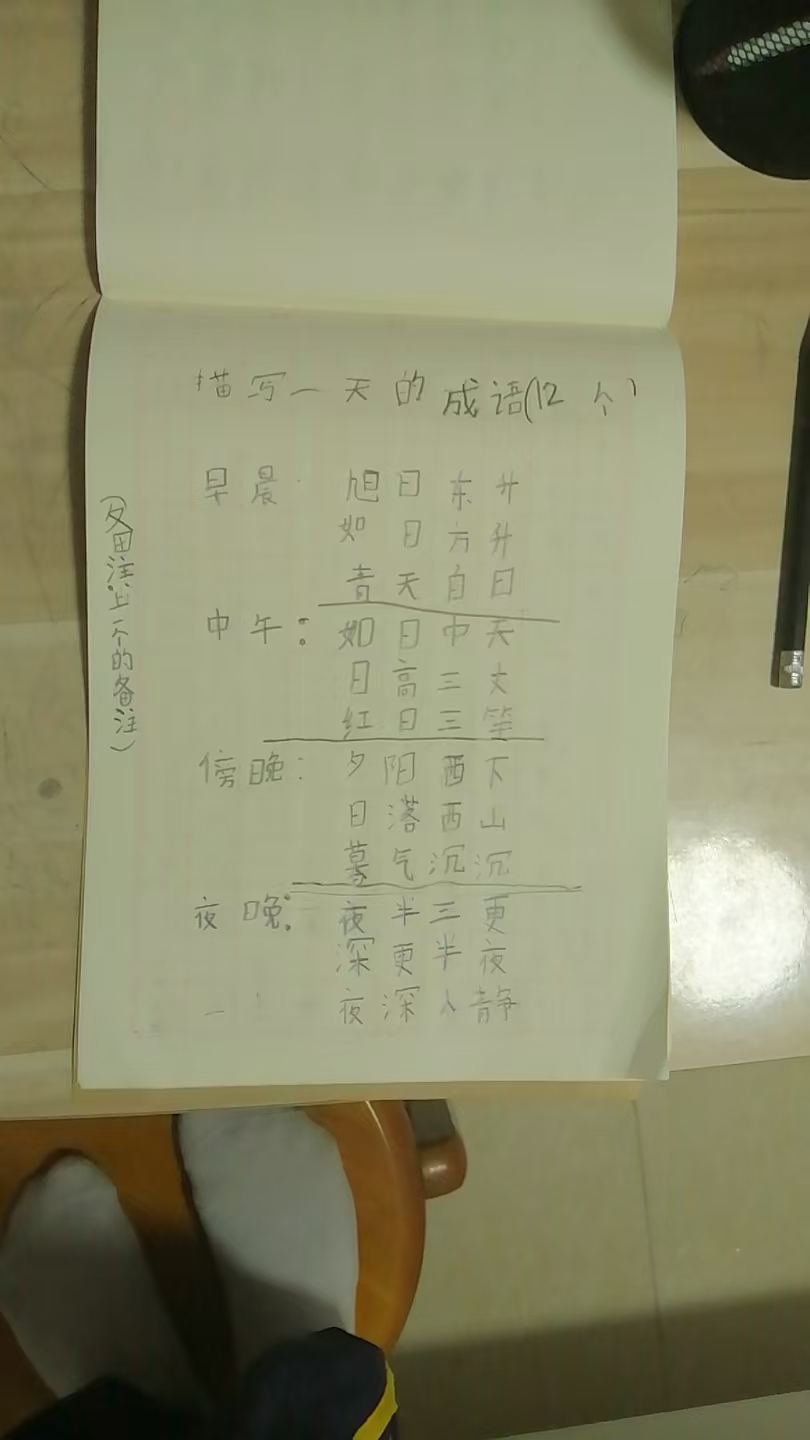 描写一天的成语(12个)
早晨: 旭日东升
如日方升
青天白日
中午: 如日中天
日高三丈
红日三竿
傍晚: 夕阳西下
日落西山
暮气沉沉
夜晚: 夜半三更
深更半夜
夜深人静
(备注上个的备注)